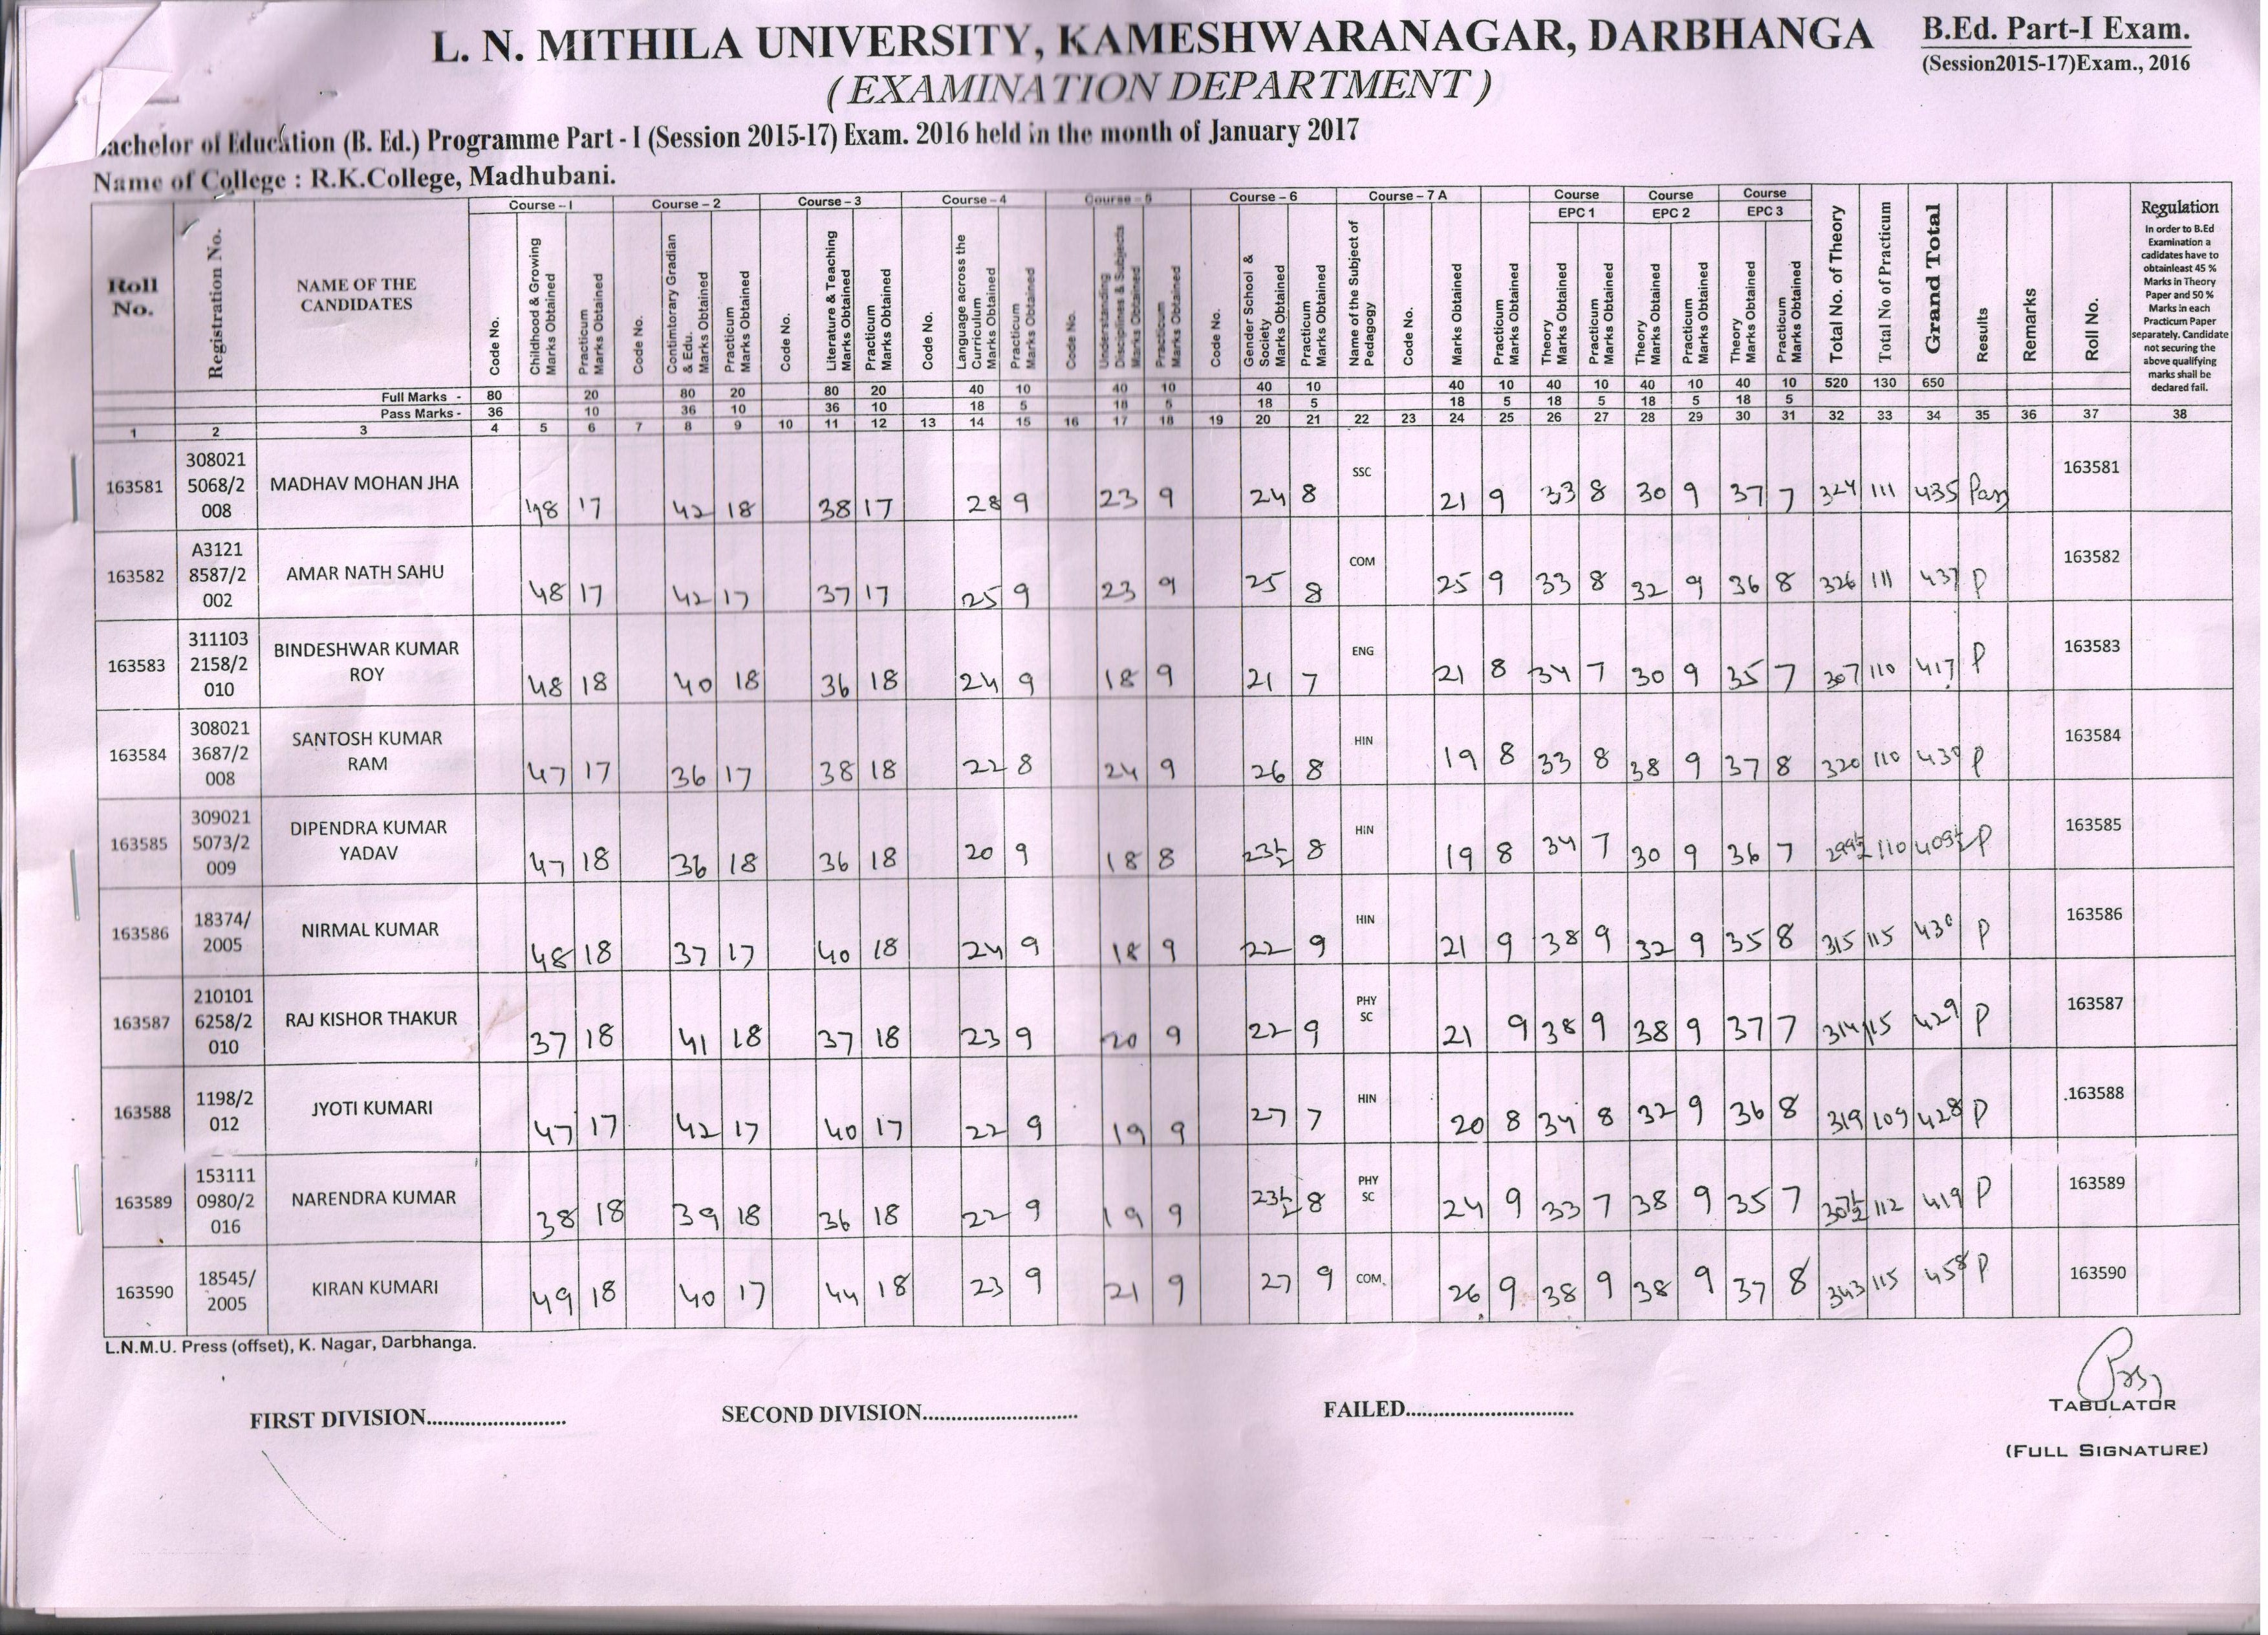 L. N. MITHILA UNIVERSITY, KAMESHWARANAGAR, DARBHANGA
B.Ed. Part-I Exam.
(Session2015-17)Exam., 2016
(EXAMINATION DEPARTMENT)
achelor of Education (B. Ed.) Programme Part - I (Session 2015-17) Exam. 2016 held in the month of January 2017
Name of College : R.K.College, Madhubani.
Course – I Course – 2 Course – 3 Course – 4 Course – 5 Course – 6 Course – 7 A Course Course Course
EPC 1 EPC 2 EPC 3
Roll No. Registration No. NAME OF THE CANDIDATES Code No. Childhood & Growing Marks Obtained Practicum Marks Obtained Code No. Contimtorary Gradian & Edu. Marks Obtained Practicum Marks Obtained Code No. Literature & Teaching Marks Obtained Practicum Marks Obtained Code No. Language across the Curriculum Marks Obtained Practicum Marks Obtained Code No. Understanding Disciplines & Subjects Marks Obtained Practicum Marks Obtained Code No. Gender School & Society Marks Obtained Practicum Marks Obtained Name of the Subject of Pedagogy Code No. Marks Obtained Practicum Marks Obtained Theory Marks Obtained Practicum Marks Obtained Theory Marks Obtained Practicum Marks Obtained Theory Marks Obtained Practicum Marks Obtained Total No. of Theory Total No of Practicum Grand Total Results Remarks Roll No.
Regulation
In order to B.Ed
Examination a
cadidates have to
obtainleast 45 %
Marks in Theory
Paper and 50 %
Marks in each
Practicum Paper
separately. Candidate
not securing the
above qualifying
marks shall be
declared fail.
Full Marks - 80 20 80 20 80 20 40 10 40 10 40 10 40 10 40 10 40 10 40 10 520 130 650
Pass Marks - 36 10 36 10 36 10 18 5 18 5 18 5 18 5 18 5 18 5 18 5
1 2 3 4 5 6 7 8 9 10 11 12 13 14 15 16 17 18 19 20 21 22 23 24 25 26 27 28 29 30 31 32 33 34 35 36 37 38
163581 308021 5068/2 008 MADHAV MOHAN JHA 48 17 42 18 38 17 28 9 23 9 24 8 SSC 21 9 33 8 30 9 37 7 324 111 435 Pass 163581
163582 A3121 8587/2 002 AMAR NATH SAHU 48 17 42 17 37 17 25 9 23 9 25 8 COM 25 9 33 8 32 9 36 8 326 111 437 P 163582
163583 311103 2158/2 010 BINDESHWAR KUMAR ROY 48 18 40 18 36 18 24 9 18 9 21 7 ENG 21 8 34 7 30 9 35 7 307 110 417 P 163583
163584 308021 3687/2 008 SANTOSH KUMAR RAM 47 17 36 17 38 18 22 8 24 9 26 8 HIN 19 8 33 8 38 9 37 8 320 110 430 P 163584
163585 309021 5073/2 009 DIPENDRA KUMAR YADAV 47 18 36 18 36 18 20 9 18 8 23½ 8 HIN 19 8 34 7 30 9 36 7 299½ 110 409½ P 163585
163586 18374/ 2005 NIRMAL KUMAR 48 18 37 17 40 18 24 9 18 9 22 9 HIN 21 9 38 9 32 9 35 8 315 115 430 P 163586
163587 210101 6258/2 010 RAJ KISHOR THAKUR 37 18 41 18 37 18 23 9 20 9 22 9 PHY SC 21 9 38 9 38 9 37 7 314 115 429 P 163587
163588 1198/2 012 JYOTI KUMARI 47 17 42 17 40 17 22 9 19 9 27 7 HIN 20 8 34 8 32 9 36 8 319 109 428 P 163588
163589 153111 0980/2 016 NARENDRA KUMAR 38 18 39 18 36 18 22 9 19 9 23½ 8 PHY SC 24 9 33 7 38 9 35 7 307½ 112 419 P 163589
163590 18545/ 2005 KIRAN KUMARI 49 18 40 17 44 18 23 9 21 9 27 9 COM. 26 9 38 9 38 9 37 8 343 115 458 P 163590
L.N.M.U. Press (offset), K. Nagar, Darbhanga.
FIRST DIVISION.......................... SECOND DIVISION............................. FAILED...............................
TABULATOR
(FULL SIGNATURE)